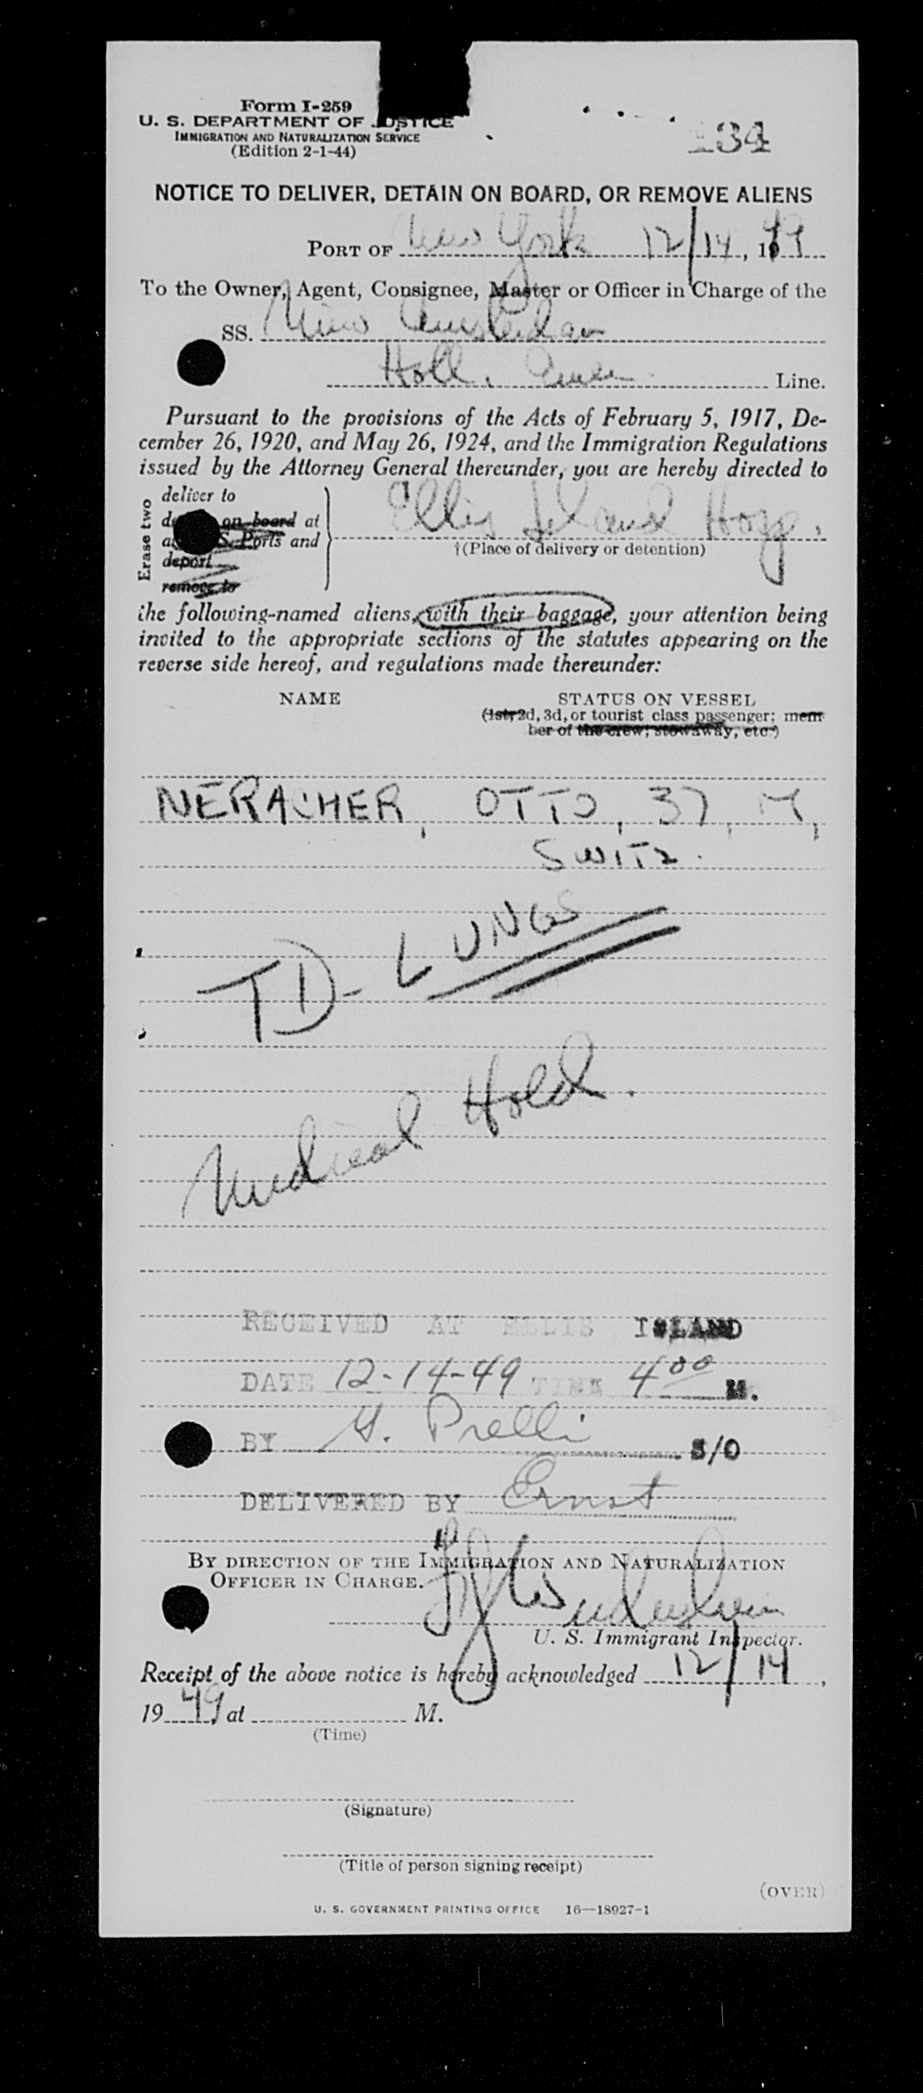 Form I-259
U. S. DEPARTMENT OF JUSTICE
IMMIGRATION AND NATURALIZATION SERVICE
(Edition 2-1-44)
134
NOTICE TO DELIVER, DETAIN ON BOARD, OR REMOVE ALIENS
PORT OF New York 12/14, 1949
To the Owner, Agent, Consignee, Master or Officer in Charge of the
SS. New Amsterdam
Holl. Amer. Line.
Pursuant to the provisions of the Acts of February 5, 1917, De-
cember 26, 1920, and May 26, 1924, and the Immigration Regulations
issued by the Attorney General thereunder, you are hereby directed to
Erase two
deliver to
on board at
S. Ports and
deport
remove to
Ellis Island Hosp.
†(Place of delivery or detention)
the following-named aliens, with their baggage, your attention being
invited to the appropriate sections of the statutes appearing on the
reverse side hereof, and regulations made thereunder:
NAME
STATUS ON VESSEL
(1st, 2d, 3d, or tourist class passenger; mem-
ber of the crew; stowaway, etc.)
NERACHER, OTTO, 37, M,
SWITZ.
LUNGS
Medical Hold.
RECEIVED AT ELLIS ISLAND
DATE 12-14-49 TIME 4 00 M.
BY G. Prelli S/O
DELIVERED BY Ernst
BY DIRECTION OF THE IMMIGRATION AND NATURALIZATION
OFFICER IN CHARGE.
U. S. Immigrant Inspector.
Receipt of the above notice is hereby acknowledged 12/14,
1949, at M.
(Time)
(Signature)
(Title of person signing receipt)
(OVER)
U. S. GOVERNMENT PRINTING OFFICE 16—18927-1